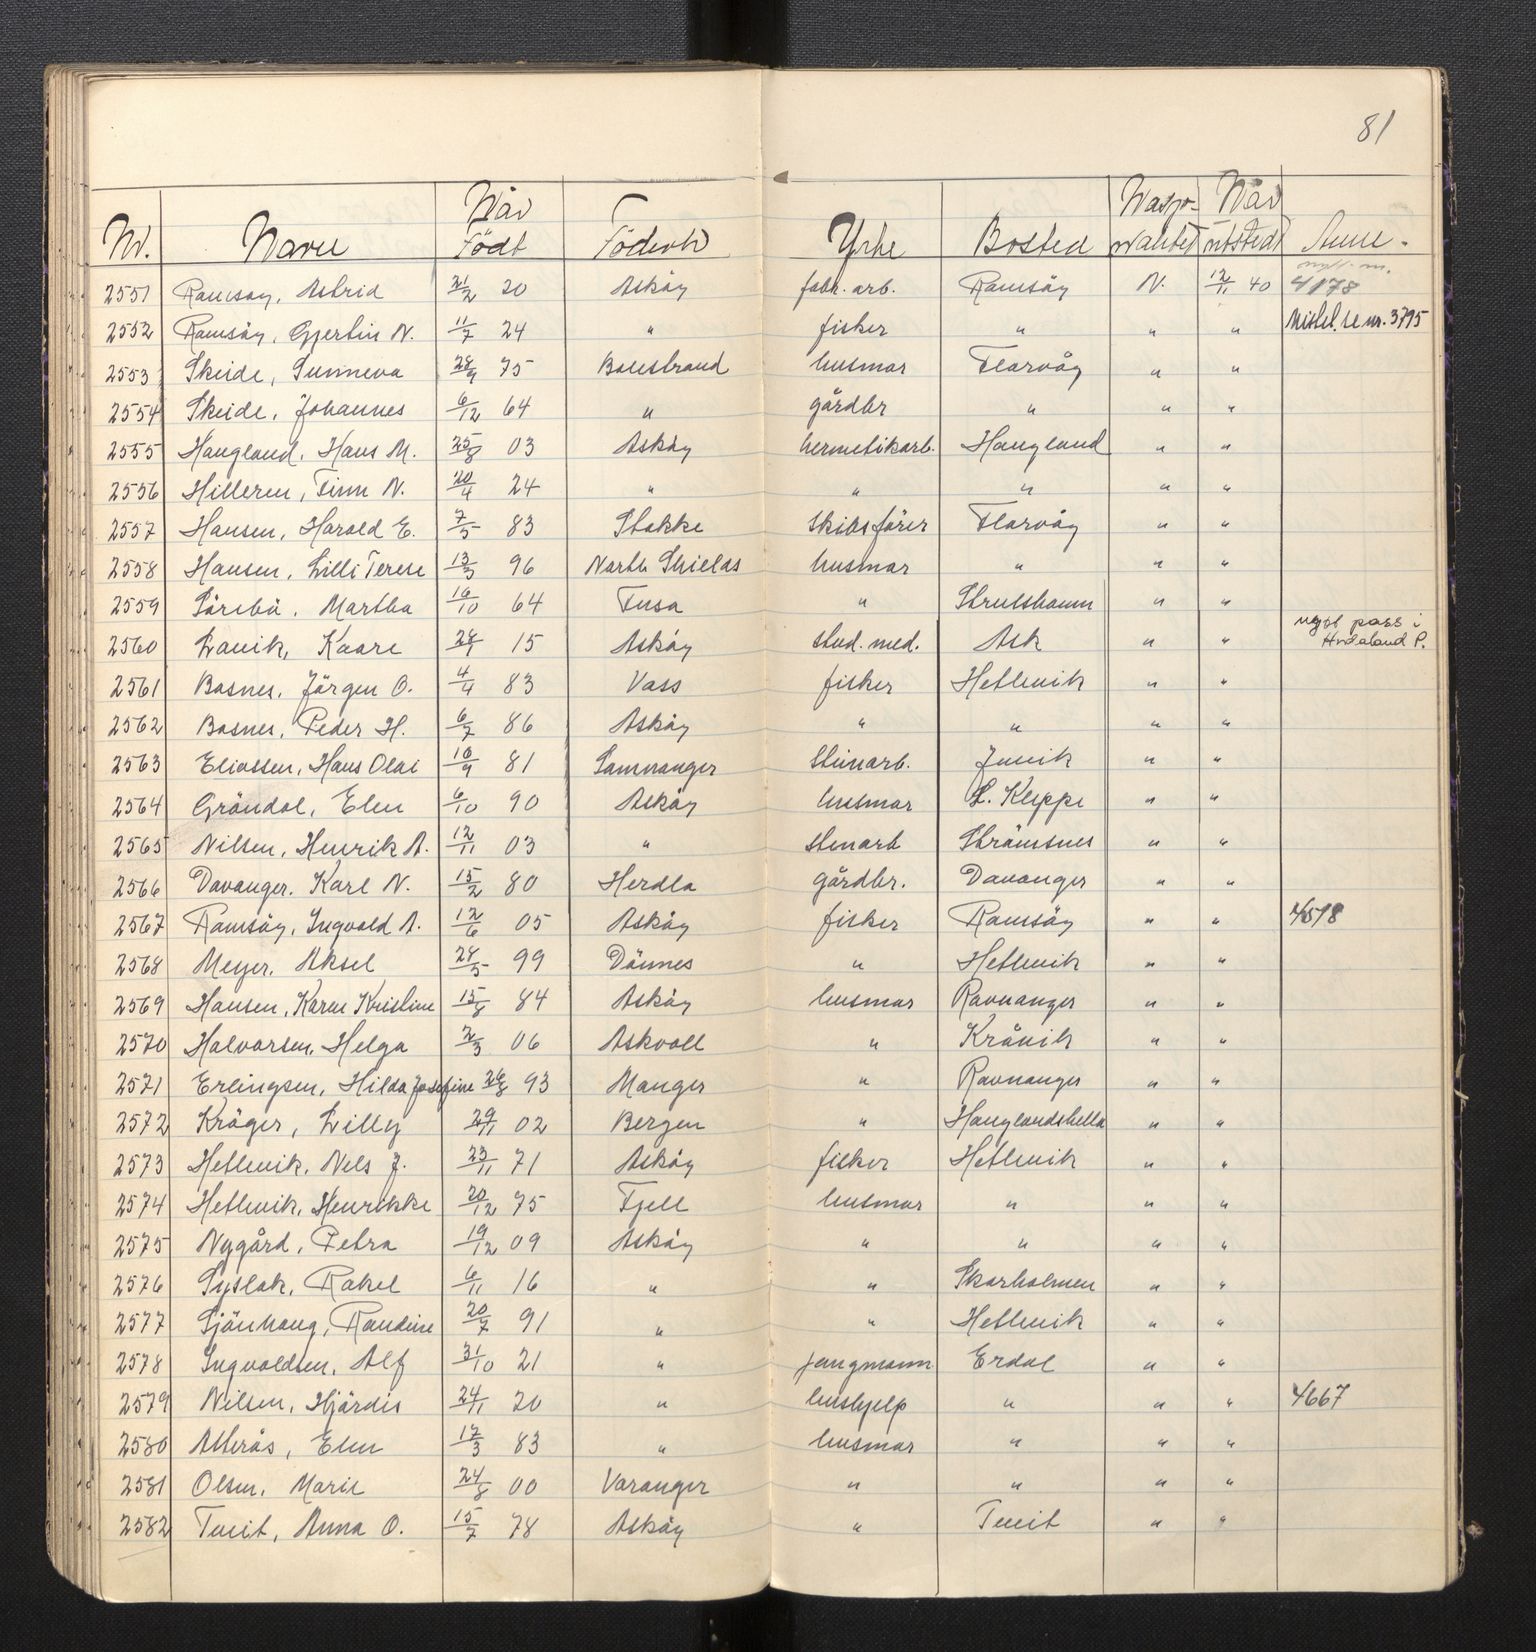 81
Nr. Navn Når Födt Födested Yrke Bosted Nasjonalitet Når utstedt Anm.
2551 Ramsøy, Astrid 21/2 20 Asköy fabr. arb. Ramsöy N. 12/11 40 nytt nr. 4178
2552 Ramsöy, Gjertin N. 11/7 24 " fisker " " " Mistet. se nr. 3795
2553 Skeide, Sunneva 28/9 75 Balestrand husmor Florvåg " "
2554 Skeide, Johannes 6/12 64 " gårdbr " " "
2555 Haugland, Hans M. 25/8 03 Asköy hermetikarb. Haugland " "
2556 Hilleren, Finn N. 20/4 24 " " " " "
2557 Hansen, Harald E. 7/5 83 Stokke Skibsförer Florvåg " "
2558 Hansen, Lilli Terese 13/3 96 North Shields husmor " " "
2559 Sörebö, Martha 16/10 64 Fusa " Strusshamn " "
2560 Lavik, Kaare 24/1 15 Asköy stud. med. Ask " " nytt pass i Hordaland P.
2561 Basnes, Jörgen O. 4/4 83 Voss fisker Hetlevik " "
2562 Basnes, Peder H. 6/7 86 Asköy " " " "
2563 Eliassen, Hans Olai 16/9 81 Samnanger Steinarb. Juvik " "
2564 Gröndal, Elen 6/10 90 Asköy husmor L. Kleppe " "
2565 Nilsen, Henrik A. 12/11 03 " Stenarb Strömsnes " "
2566 Davanger. Karl N. 15/2 80 Herdla gårdbr. Davanger " "
2567 Ramsöy, Ingvald A. 12/6 05 Asköy fisker Ramsöy " " 4518
2568 Meyer. Aksel 28/5 99 Dönnes " Hetlevik " "
2569 Hansen, Karen Kristine 15/8 84 Asköy husmor Ravnanger " "
2570 Halvorsen. Helga 2/3 06 Askvoll " Kråvik " "
2571 Erlingsen, Hilda Josefine 26/8 93 Manger " Ravnanger " "
2572 Kröger, Lilly 29/11 02 Bergen " Hauglandshella " "
2573 Hetlevik, Nels J. 23/11 71 Asköy fisker Hetlevik " "
2574 Hetlevik, Henrikke 20/12 75 Fjell husmor " " "
2575 Nygård, Petra 19/12 09 Asköy " " " "
2576 Syslak, Rakel 6/11 16 " " Skarholmen " "
2577 Sjönhaug, Randine 20/7 91 " " Hetlevik " "
2578 Ingvaldsen, Alf 31/10 21 " jungmann Erdal " "
2579 Nilsen, Hjördis 24/1 20 " hushjelp " " " 4667
2580 Alterås, Elen 17/3 83 " husmor " " "
2581 Olsen, Marie 24/8 00 Varanger " " " "
2582 Tveit, Anna O. 15/7 78 Asköy " Tveit " "